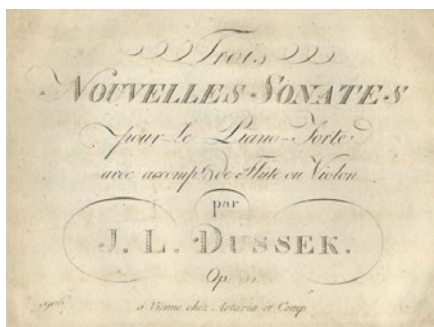 Trois
NOUVELLES SONATES
pour le Piano-Forte
avec accomp. de Flûte ou Violon
par
J. L. DUSSEK.
Op.
à Vienne chez Artaria et Comp.